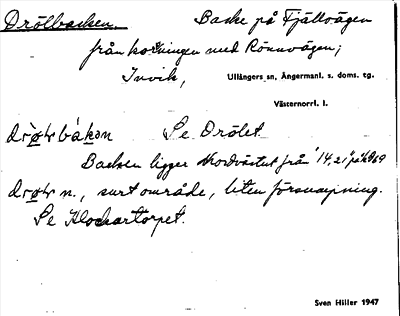 Drölbacken Backe på Fjällvägen
från korsningen med Rönnvägen;
Invik, Ullångers sn, Ångermanl. s. doms. tg.
Västernorrl. l.
Se Drölet
Backen ligger nordväst från "14,21" på
n., surt område, liten försumpning.
Se Klockartorpet.
Sven Hiller 1947